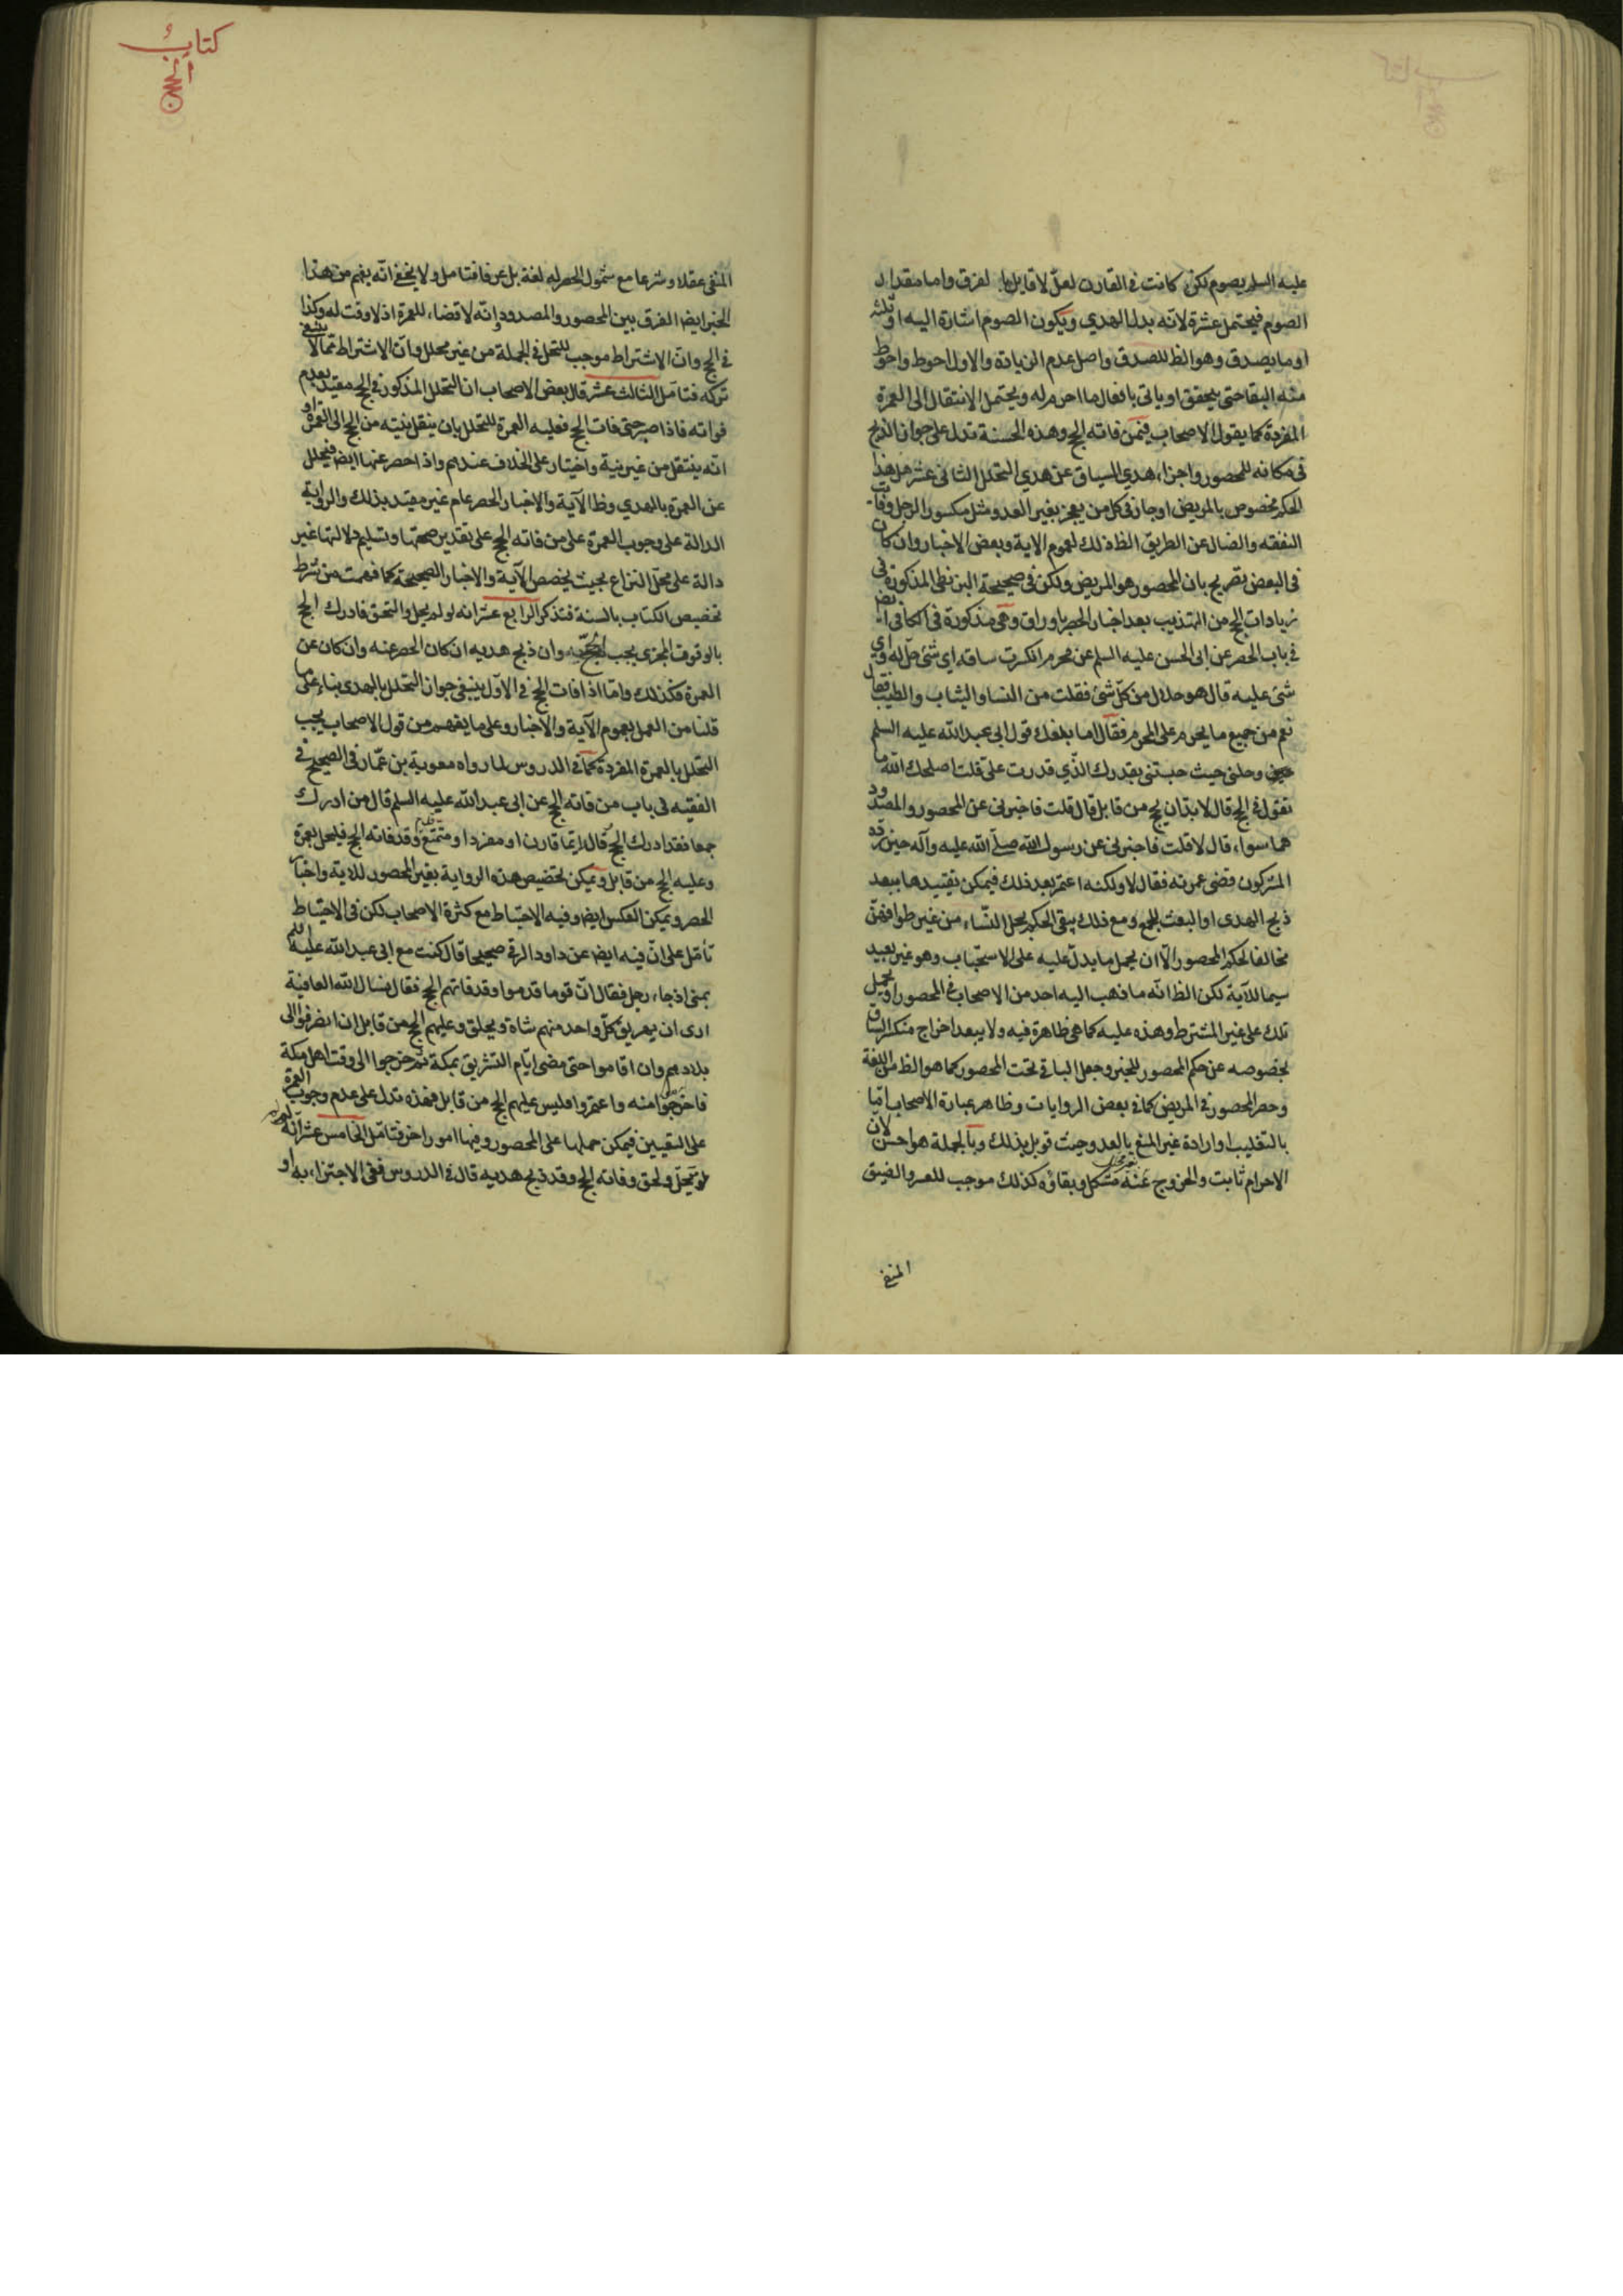 عليه السلم يصوم لكن كانت في القارن لعل لا قايل بالفرق واما مقدار
الصوم فيحتمل عشرة لانه بدل الهدي ويكون الصوم اشارة اليه او ثلثة
او ما يصدق وهو الظ للصدق واصل عدم الزيادة والاول احوط واحوط
منه البقا حتى يتحقق او ياتى بافعال ما احرم له ويحتمل الانتقال الى العمرة
المفردة كما يقول الاصحاب فيمن فاته الحج وهذه الحسنة تدل على جواز الذبح
فى مكانه للمحصور واجزاء هدي السياق عن هدي التحلل الثانى عشر هل هذا
الحكم مخصوص بالمريض او جار فى كل من يعجز بغير العدو مثل مكسور الرجل وفاقد
النفقه والضال عن الطريق الظ ذلك لعموم الاية وبعض الاخبار وان كان
فى البعض تصريح بان المحصور هو المريض ولكن فى صحيحة البزنطى المذكورة فى
زيادات الحج من التهذيب بعد اخبار الحصر باوراق وهى مذكورة فى الكافى ايضا
في باب الحصر عن ابى الحسن عليه السلم عن محرم انكسرت ساقه اى شئ حل له واي
شئ عليه قال هو حلال من كل شئ فقلت من النسا والثياب والطيب فقال
نعم من جميع ما يحرم على المحرم فقال اما بلغك قول ابى عبد الله عليه السلم
وحلنى حيث حبستنى بقدرك الذي قدرت على قلت اصلحك الله ما
تقول في الحج قال لا بد ان يحج من قابل قال قلت فاخبرنى عن المحصور والمصدود
هما سواء قال لا قلت فاخبرنى عن رسول الله صلى الله عليه وآله حين رده
المشركون قضى عمرته فقال لا ولكنه اعتمر بعد ذلك فيمكن تقييدها ببعد
ذبح الهدى او البعث للجمع ومع ذلك يبقى الحكم بحل النساء من غير طوافهن
مخالفا لحكم المحصور الا ان يحمل ما يدل عليه على الاستحباب وهو غير بعيد
سيما للآية لكن الظ انه ما ذهب اليه احد من الاصحاب في المحصور او يحمل
تلك على غير المشترط وهذه عليه كما هى ظاهرة فيه ولا يبعد اخراج منكسر الساق
بخصوصه عن حكم المحصور للخبر وجعل الباقى تحت المحصور كما هو الظ من اللغة
وحصر المحصور في المريض كما في بعض الروايات وظاهر عبارة الاصحاب اما
بالتغليب او ارادة غير المنع بالعدو حيث قوبل بذلك وبالجملة هو احسن لان
الاحرام ثابت والخروج عنه مشكل وبقاؤه كذلك موجب للعسر والضيق
المنفى
كتاب
الحج
المنفى عقلا وشرعا مع شمول الحصر له لغة بل عرفا فتامل ولا يخفى انه يفهم من هذا
الخبر ايضا الفرق بين المحصور والمصدود وانه لا قضاء للعمرة اذ لا وقت له وكذا
في الحج وان الاشتراط موجب للتحلل في الجملة من غير محلل وان الاشتراط مما لا ينبغى
تركه فتامل الثالث عشر قال بعض الاصحاب ان التحلل المذكور في الحج مقيد بعدم
فواته فاذا صبر حتى فات الحج فعليه العمرة للتحلل بان ينقل نيته من الحج الى العمرة او
انه ينتقل من غير نية واختيار على الخلاف عندهم واذا احصر عنها ايضا فيتحلل
عن العمرة بالهدي وظ الآية والاخبار الحصر عام غير مقيد بذلك والرواية
الدالة على وجوب العمرة على من فاته الحج على تقدير صحتها وتسليم دلالتها غير
دالة على محل النزاع بحيث يخصص الآية والاخبار الصحيحة كما فهمت من شرط
تخصيص الكتاب بالسنة فتذكر الرابع عشر انه لو لم يحل والتحق فادرك الحج
بالوقوف المجزى يجب الحج وان ذبح هديه ان كان الحصر عنه وان كان عن
العمرة فكذلك واما اذا فات الحج في الاول ينبغى جواز التحلل بالهدى بناء على ما
قلنا من العمل بعموم الآية والاخبار وعلى ما يفهم من قول الاصحاب يجب
التحلل بالعمرة المفردة كما في الدروس لما رواه معوية بن عمار في الصحيح في
الفقيه فى باب من فاته الحج عن ابى عبد الله عليه السلم قال من ادرك
جمعا فقد ادرك الحج قال وايما قارن او مفرد او متمتع قدم وقد فاته الحج فليحل بعمرة
وعليه الحج من قابل ويمكن تخصيص هذه الرواية بغير المحصور للاية واخبار
الحصر ويمكن العكس ايضا وفيه الاحتياط مع كثرة الاصحاب لكن فى الاحتياط
تأمل على ان فيه ايضا عن داود الرقى صحيحا قال كنت مع ابى عبد الله عليه السلم
بمنى اذ جاء رجل فقال ان قوما قدموا وقد فاتهم الحج فقال نسال الله العافية
ارى ان يهريق كل واحد منهم شاة ويحلق وعليهم الحج من قابل ان انصرفوا الى
بلادهم وان اقاموا حتى مضى ايام التشريق بمكة ثم خرجوا الى وقت اهل مكة
فاحرموا منه واعتمروا فليس عليهم الحج من قابل فهذه تدل على عدم وجوب العمرة
على التعيين فيمكن حملها على المحصور وفيها امور اخر فتامل الخامس عشر انه
لو تحلل ولحق وفاته الحج وقد ذبح هديه قال في الدروس ففى الاجتزاء به او